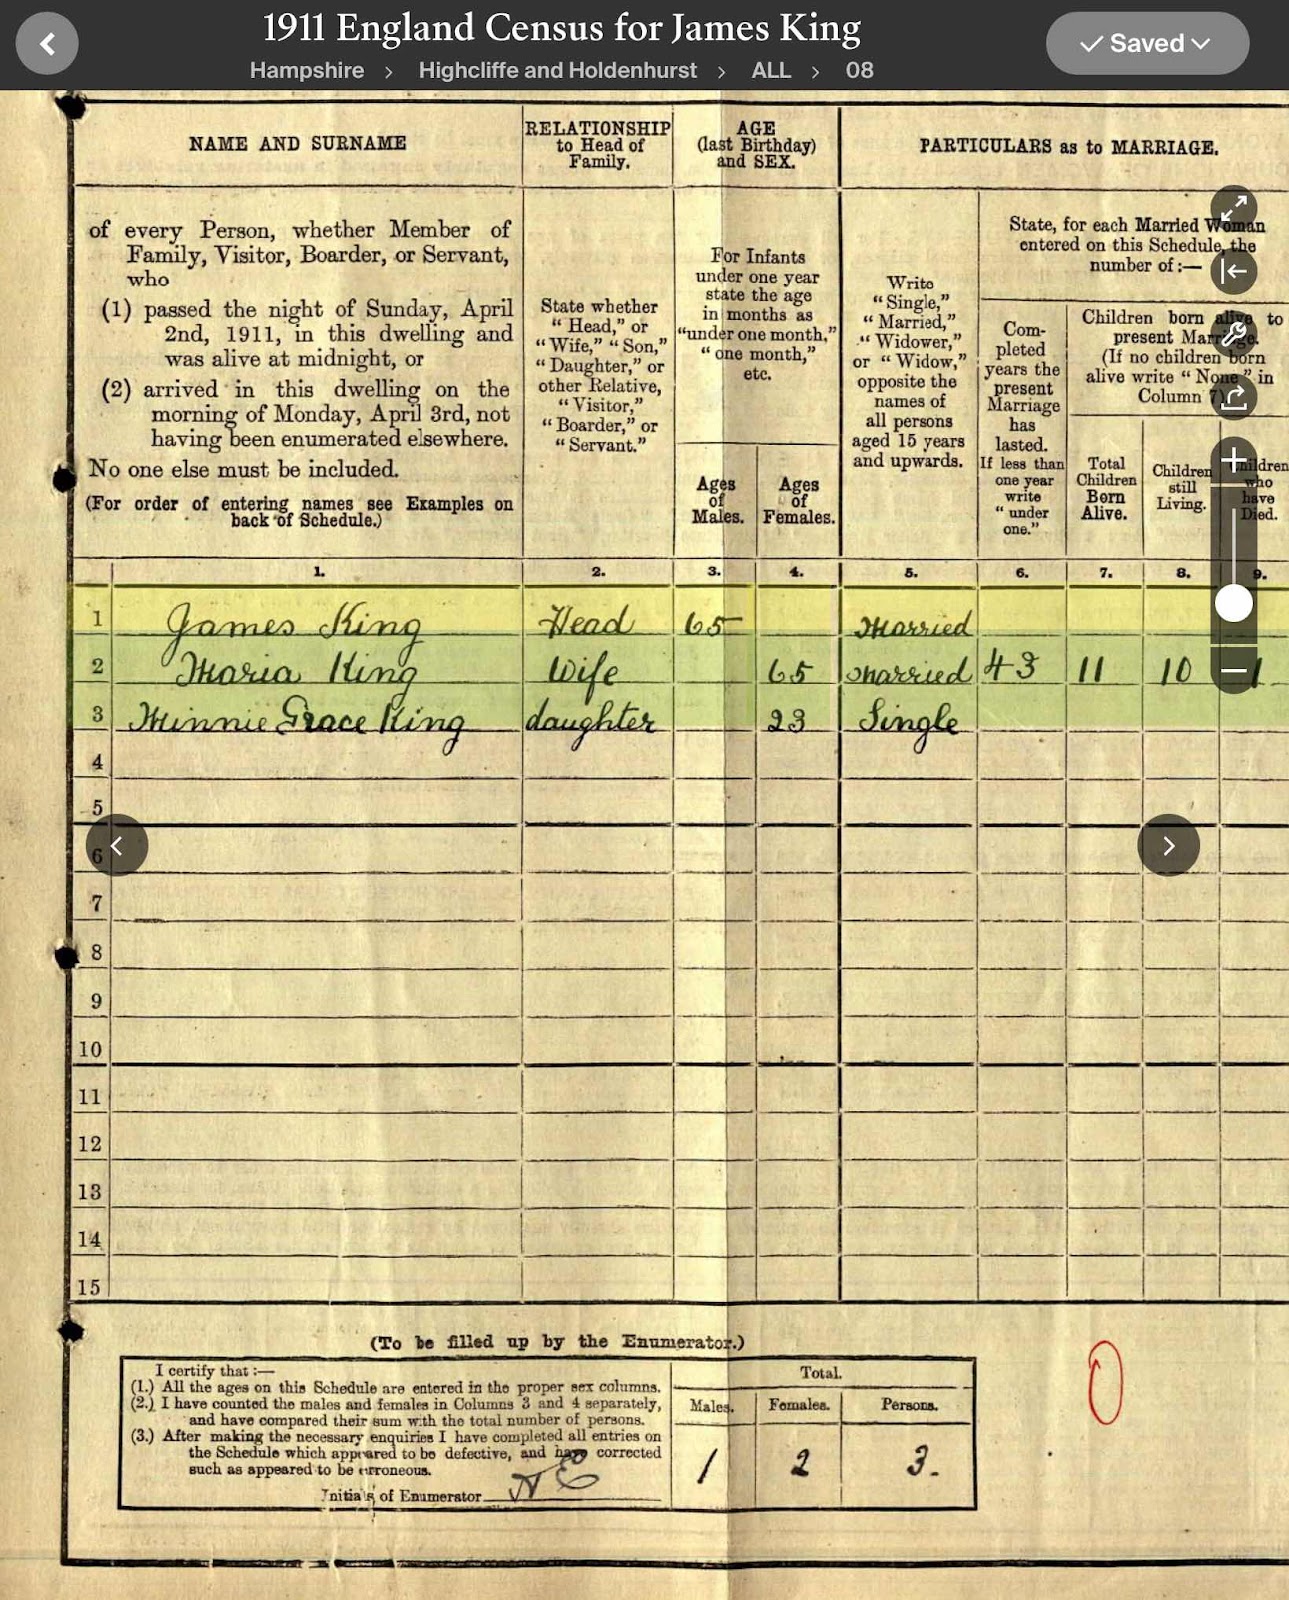 1911 England Census for James King
Saved
Hampshire > Highcliffe and Holdenhurst > ALL > 08
NAME AND SURNAME
RELATIONSHIP
to Head of
Family.
AGE
(last Birthday)
and SEX.
PARTICULARS as to MARRIAGE.
of every Person, whether Member of
Family, Visitor, Boarder, or Servant,
who
(1) passed the night of Sunday, April
2nd, 1911, in this dwelling and
was alive at midnight, or
(2) arrived in this dwelling on the
morning of Monday, April 3rd, not
having been enumerated elsewhere.
No one else must be included.
(For order of entering names see Examples on
back of Schedule.)
State whether
"Head," or
"Wife," "Son,"
"Daughter," or
other Relative,
"Visitor,"
"Boarder," or
"Servant."
For Infants
under one year
state the age
in months as
"under one month,"
"one month,"
etc.
Ages
of
Males.
Ages
of
Females.
Write
"Single,"
"Married,"
"Widower,"
or "Widow,"
opposite the
names of
all persons
aged 15 years
and upwards.
State, for each Married Woman
entered on this Schedule, the
number of:—
Com-
pleted
years the
present
Marriage
has
lasted.
If less than
one year
write
"under
one."
Children born alive to
present Marriage.
(If no children born
alive write "None" in
Column 7).
Total
Children
Born
Alive.
Children
still
Living.
Children
who
have
Died.
1. 2. 3. 4. 5. 6. 7. 8. 9.
1 James King Head 65 Married
2 Maria King Wife 65 Married 43 11 10 1
3 Minnie Grace King daughter 23 Single
4
5
6
7
8
9
10
11
12
13
14
15
(To be filled up by the Enumerator.)
I certify that:—
(1.) All the ages on this Schedule are entered in the proper sex columns.
(2.) I have counted the males and females in Columns 3 and 4 separately,
and have compared their sum with the total number of persons.
(3.) After making the necessary enquiries I have completed all entries on
the Schedule which appeared to be defective, and have corrected
such as appeared to be erroneous.
Initials of Enumerator
Total.
Males. Females. Persons.
1 2 3.
0